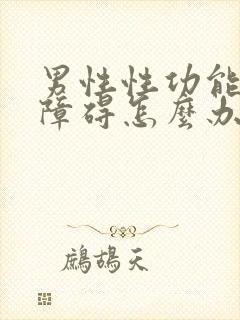 男性性功能
障碍怎麼办
鷓鴣天